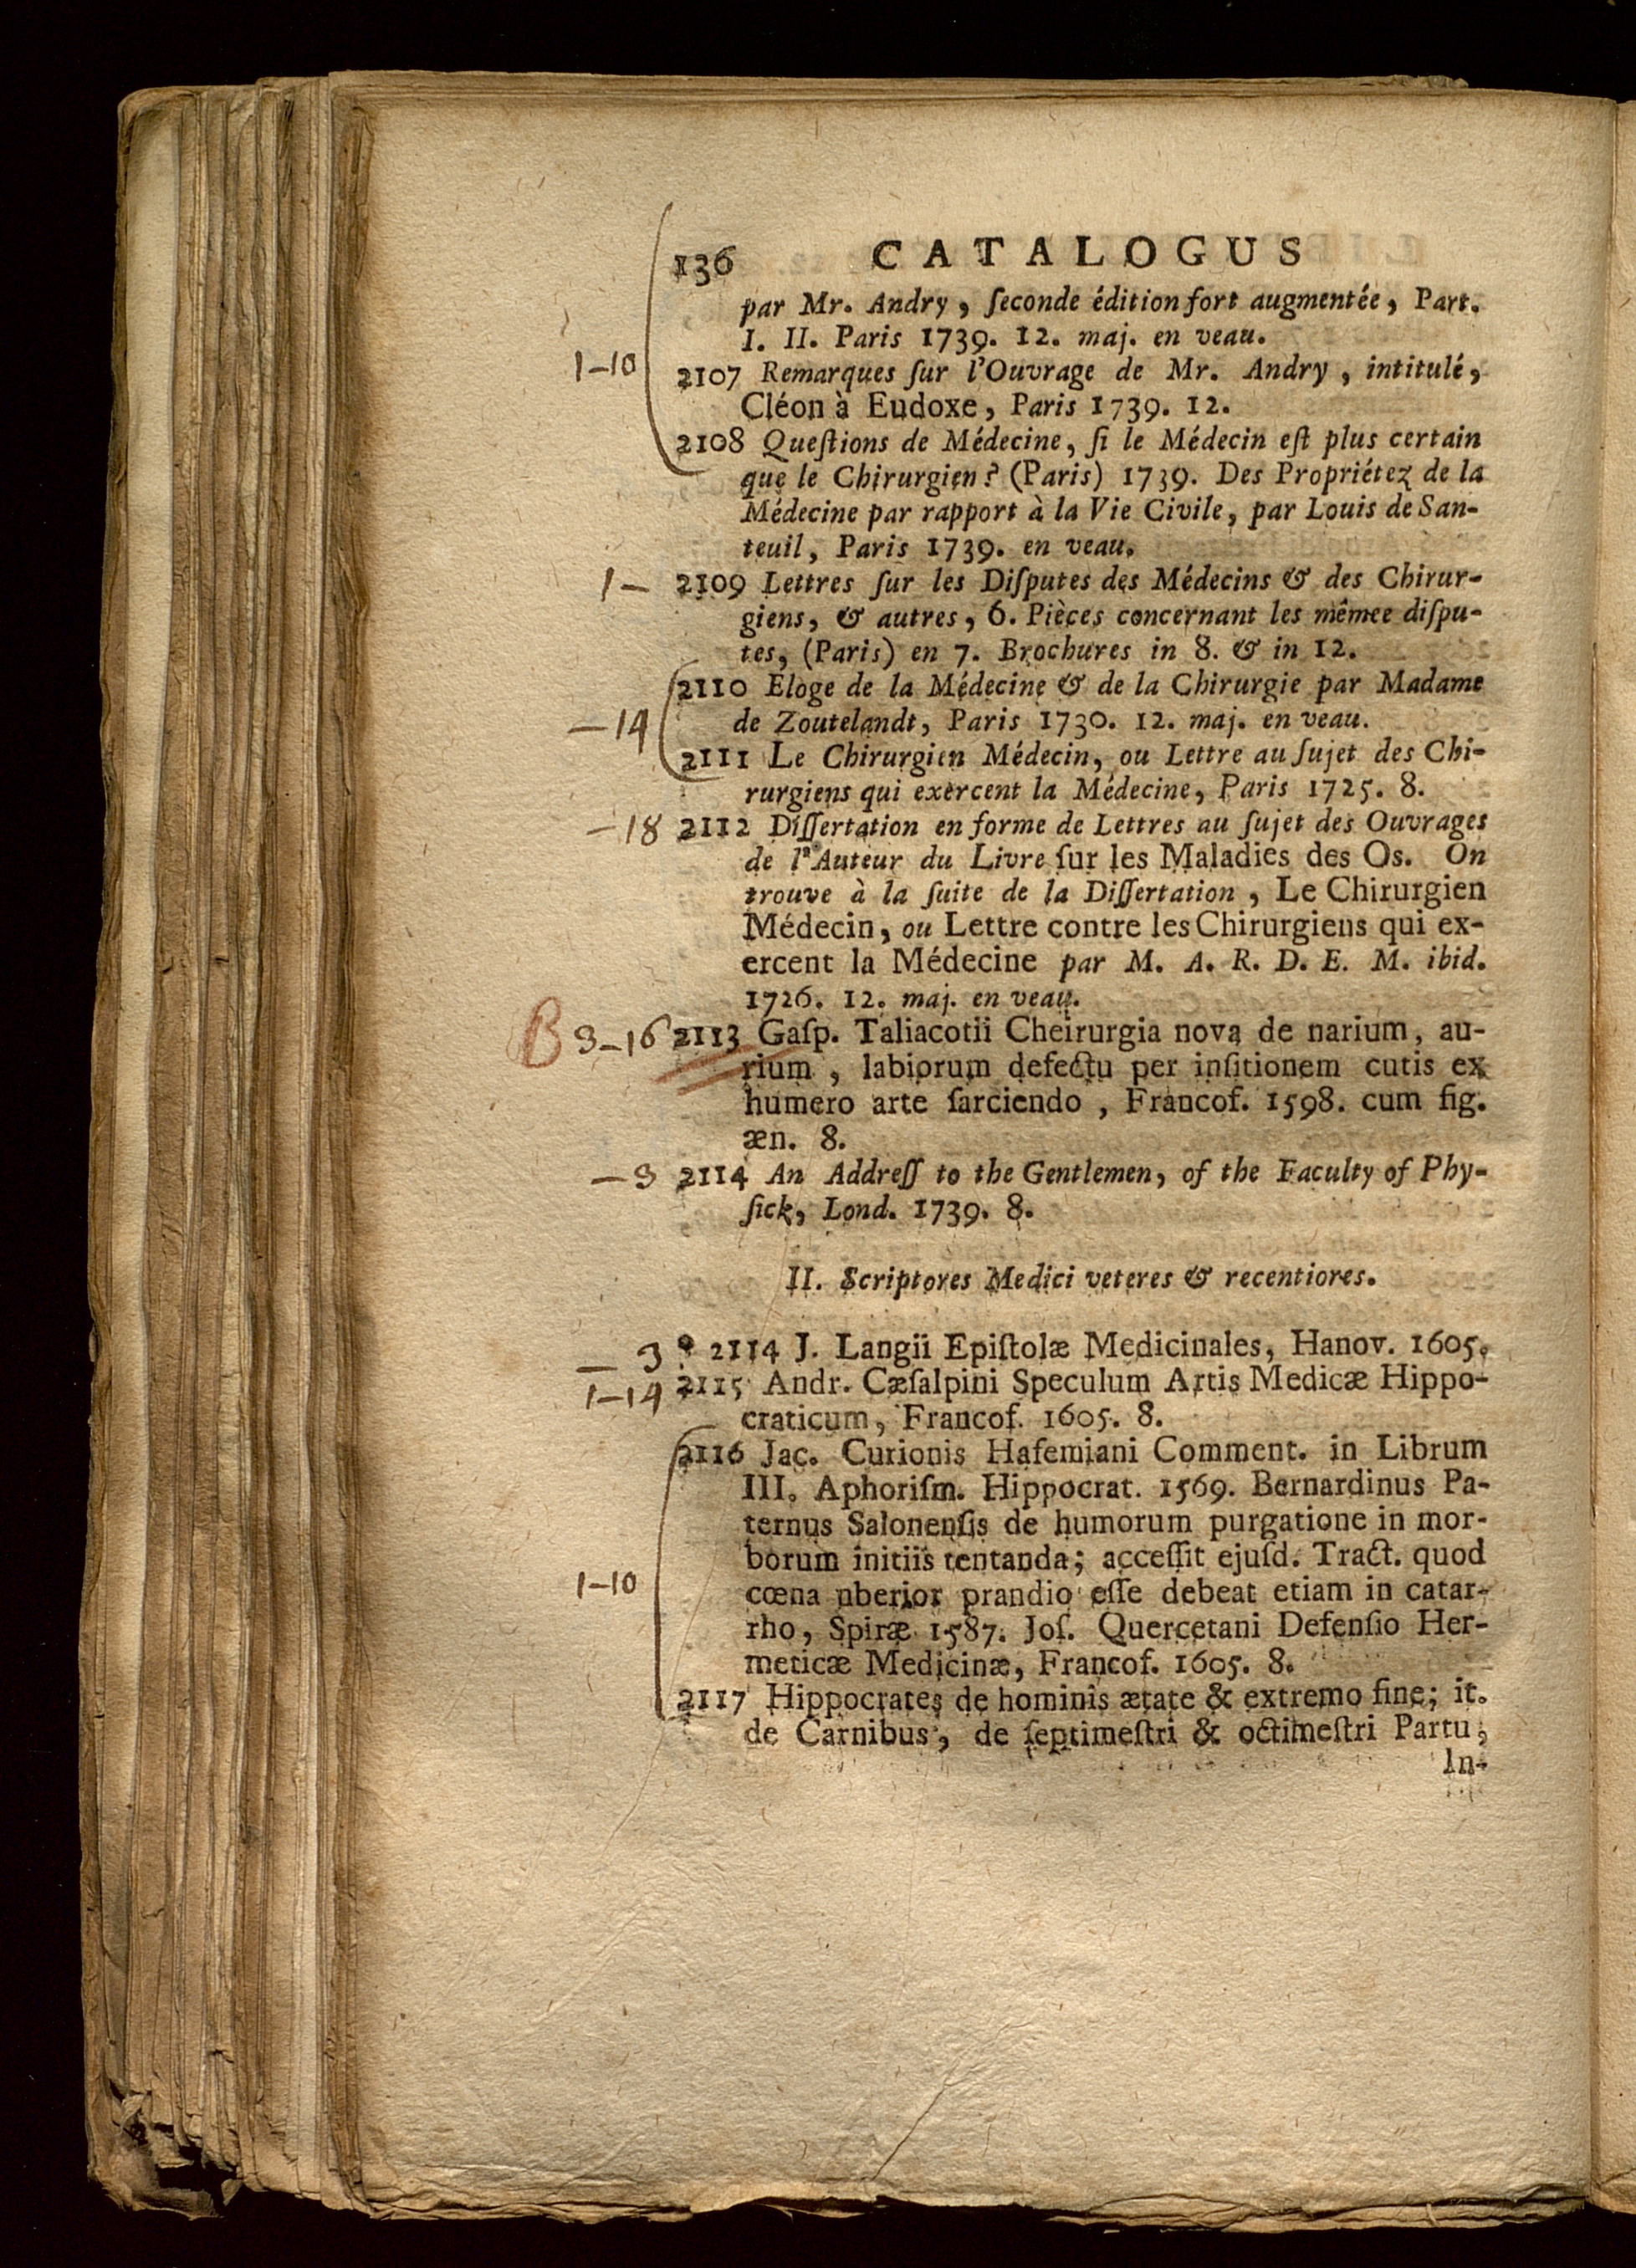 136 CATALOGUS
par Mr. Andry, ſeconde édition fort augmentée, Part.
I. II. Paris 1739. 12. maj. en veau.
1-10 2107 Remarques ſur l'Ouvrage de Mr. Andry, intitulé,
Cléon à Eudoxe, Paris 1739. 12.
2108 Queſtions de Médecine, ſi le Médecin eſt plus certain
que le Chirurgien? (Paris) 1739. Des Propriétez de la
Médecine par rapport à la Vie Civile, par Louis de San-
teuil, Paris 1739. en veau.
1- 2109 Lettres ſur les Diſputes des Médecins & des Chirur-
giens, & autres, 6. Pièces concernant les mêmee diſpu-
tes, (Paris) en 7. Brochures in 8. & in 12.
2110 Eloge de la Médecine & de la Chirurgie par Madame
-14 de Zoutelandt, Paris 1730. 12. maj. en veau.
2111 Le Chirurgien Médecin, ou Lettre au ſujet des Chi-
rurgiens qui exercent la Médecine, Paris 1725. 8.
-18 2112 Diſſertation en forme de Lettres au ſujet des Ouvrages
de l'Auteur du Livre ſur les Maladies des Os. On
trouve à la ſuite de la Diſſertation, Le Chirurgien
Médecin, ou Lettre contre les Chirurgiens qui ex-
ercent la Médecine par M. A. R. D. E. M. ibid.
1726. 12. maj. en veau.
B 3-16 2113 Gaſp. Taliacotii Cheirurgia nova de narium, au-
rium, labiorum defectu per inſitionem cutis ex
humero arte ſarciendo, Francof. 1598. cum fig.
æn. 8.
-3 2114 An Addreſſ to the Gentlemen, of the Faculty of Phy-
ſick, Lond. 1739. 8.
II. Scriptores Medici veteres & recentiores.
-3 2114 J. Langii Epiſtolæ Medicinales, Hanov. 1605.
1-14 2115 Andr. Cæſalpini Speculum Artis Medicæ Hippo-
craticum, Francof. 1605. 8.
2116 Jac. Curionis Hafemiani Comment. in Librum
III. Aphoriſm. Hippocrat. 1569. Bernardinus Pa-
ternus Salonenſis de humorum purgatione in mor-
borum initiis tentanda; acceſſit ejuſd. Tract. quod
1-10 cœna uberior prandio eſſe debeat etiam in catar-
rho, Spiræ 1587. Joſ. Quercetani Defenſio Her-
meticæ Medicinæ, Francof. 1605. 8.
2117 Hippocrates de hominis ætate & extremo fine; it.
de Carnibus, de ſeptimeſtri & octimeſtri Partu,
In-